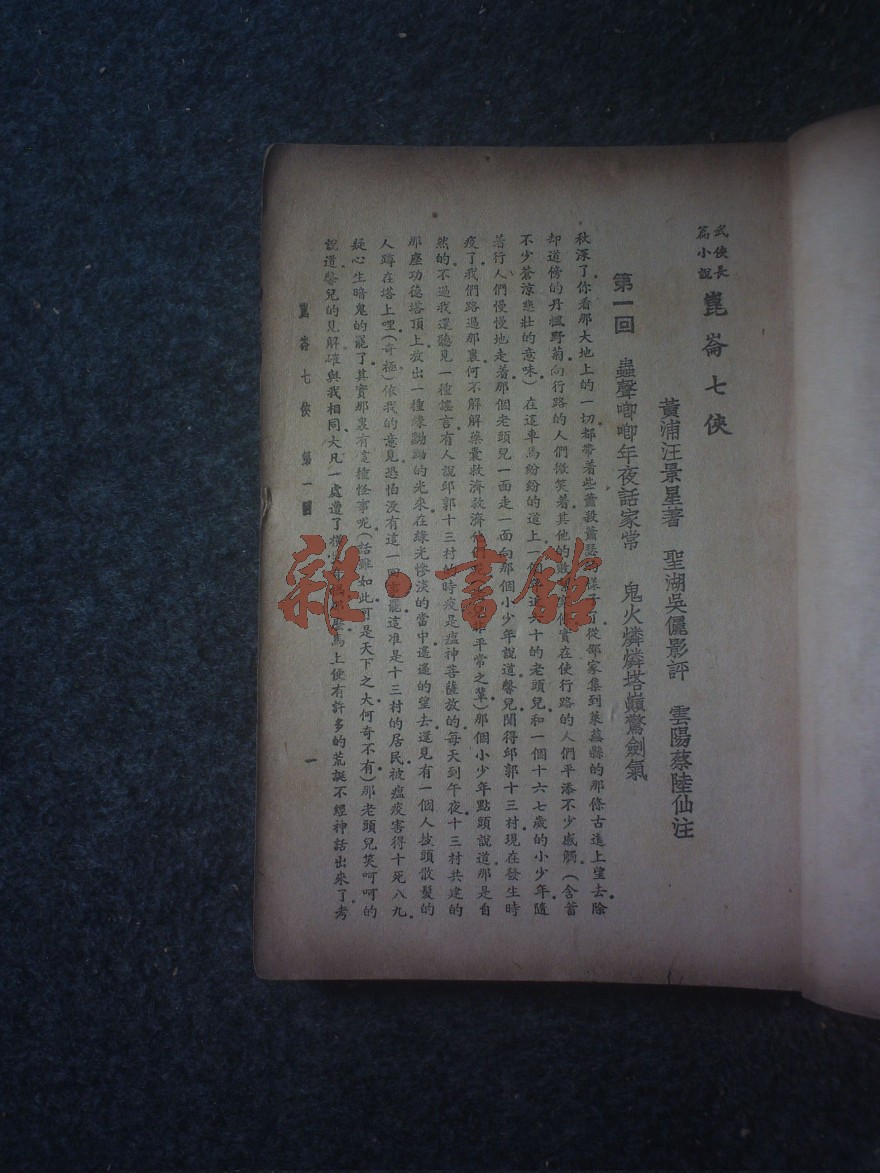 武俠長
篇小說
崑崙七俠
黃浦汪景星著 聖湖吳儷影評 雲陽蔡陸仙注
第一回 蟲聲唧唧年夜話家常 鬼火燐燐塔巔驚劍氣
秋深了你看那大地上的一切都帶着些蕭殺蕭瑟的樣子可從鄒家集到萊蕪縣的那條古道上望去除
却道傍的丹楓野菊向行路的人們微笑着其他的 實在使行路的人們平添不少感觸（含蓄
不少蒼涼悲壯的意味）在這車馬紛紛的道上一個年逾六十的老頭兒和一個十六七歲的小少年隨
着行人們慢慢地走着那個老頭兒一面走一面向那個小少年說道馨兒聞得邱郭十三村現在發生時
疫了我們路過那裏何不解解藥囊救濟救濟他 非平常之輩）那個小少年點頭說道那是自
然的不過我還聽見一種謠言有人說邱郭十三村的時疫是瘟神菩薩放的每天到午夜十三村共建的
那座功德塔頂上放出一種綠勣勣的光來在綠光慘淡的當中遙遙的望去還見有一個人披頭散髮的
人蹲在塔上哩（奇極）依我的意見恐怕沒有這一回事罷這准是十三村的居民被瘟疫害得十死八九
疑心生暗鬼的罷了其實那裏有這種怪事呢（話雖如此可是天下之大何奇不有）那老頭兒笑呵呵的
說道馨兒的見解確與我相同大凡一處遭了 馬上便有許多的荒誕不經神話出來了考
崑崙七俠 第一回 一
雜·書館